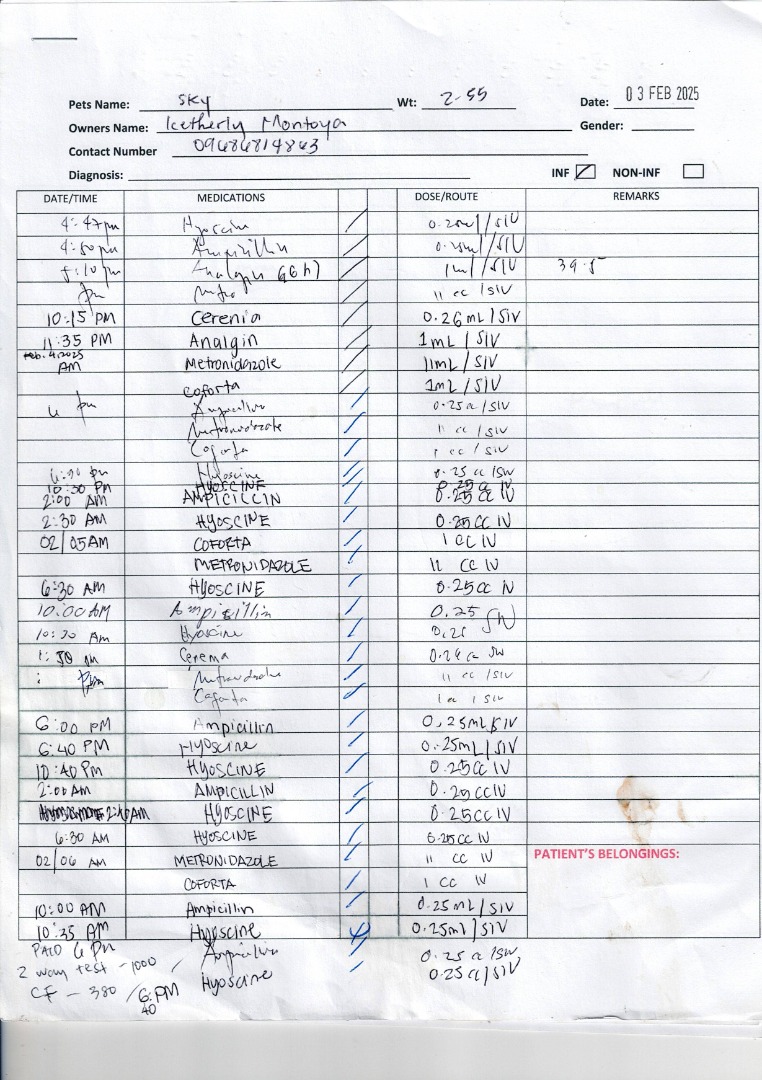 Pets Name: SKY Wt: 2-55 Date: 03 FEB 2025
Owners Name: Ketherly Montoya Gender:
Contact Number 09484814843
Diagnosis: INF NON-INF
DATE/TIME MEDICATIONS DOSE/ROUTE REMARKS
4:47 pm Hyoscine 0.25ml/SIV
4:50 pm Ampicillin 0.25ml/SIV
5:10 pm Analgin (6h) 1ml/SIV 39.5
pm Metro 11 cc/SIV
10:15 PM Cerenia 0.26mL/SIV
11:35 PM Analgin 1mL/SIV
Feb. 4, 2025 AM Metronidazole 11mL/SIV
Coforta 1mL/SIV
6 pm Ampicillin 0.25cc/SIV
Metronidazole 11 cc/SIV
Coforta 1 cc/SIV
6:30 pm Hyoscine 0.25 cc/SIV
10:30 PM HYOSCINE 0.25 cc IV
2:00 AM AMPICILLIN 0.25CC IV
2:30 AM HYOSCINE 0.25CC IV
02/05 AM COFORTA 1 CC IV
METRONIDAZOLE 11 CC IV
6:30 AM HYOSCINE 0.25CC IV
10:00 AM Ampicillin 0.25 SIV
10:30 AM Hyoscine 0.25
1:30 Cerenia 0.26 cc SIV
pm Metronidazole 11 cc/SIV
Coforta 1cc/SIV
6:00 PM Ampicillin 0.25mL/SIV
6:40 PM Hyoscine 0.25mL/SIV
10:40 PM HYOSCINE 0.25CC IV
2:00 AM AMPICILLIN 0.25CC IV
AM HYOSCINE 0.25CC IV
6:30 AM HYOSCINE 0.25CC IV
02/06 AM METRONIDAZOLE 11 CC IV
PATIENT'S BELONGINGS:
COFORTA 1 CC IV
10:00 AM Ampicillin 0.25mL/SIV
10:35 AM Hyoscine 0.25ml/SIV
PAID 6 PM Ampicillin 0.25cc/SIV
2 way test - 1000 Hyoscine 0.25cc/SIV
CF - 380 / 6:PM
40